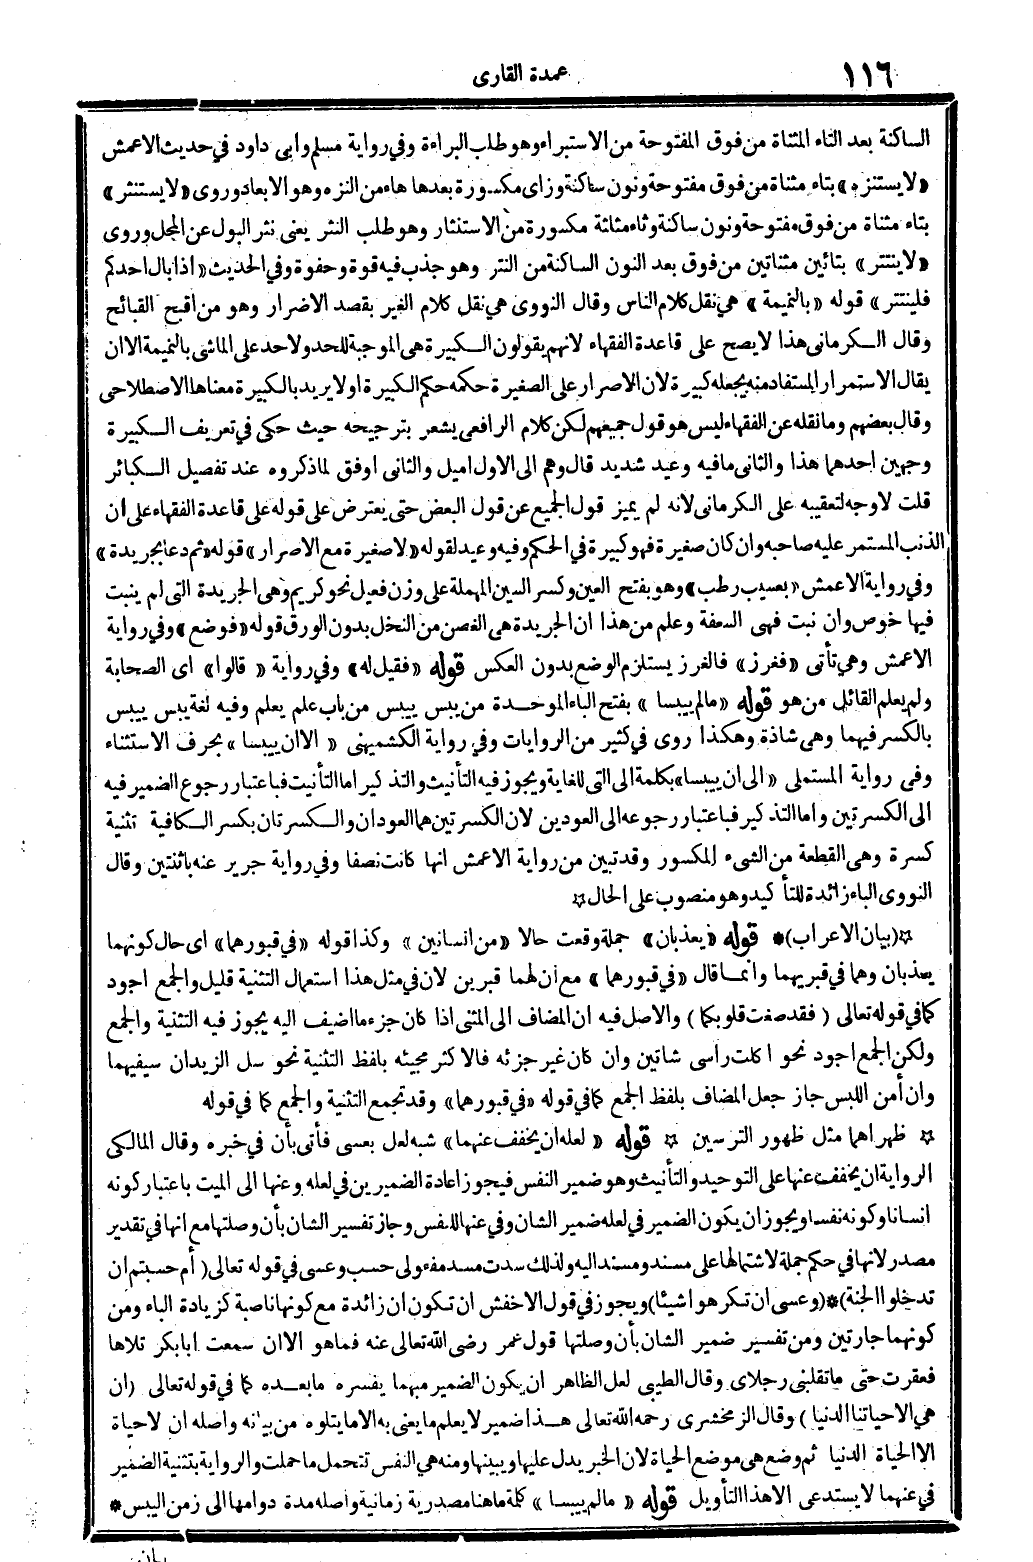 ١١٦
عمدة القارى
الساكنة بعد التاء المثناة من فوق المفتوحة من الاستبراء وهو طلب البراءة وفي رواية مسلم وابى داود في حديث الاعمش
«لا يستنزه» بتاء مثناة من فوق مفتوحة ونون ساكنة وزاى مكسورة بعدها هاء من النزه وهو الابعاد وروى «لا يستنثر»
بتاء مثناة من فوق مفتوحة ونون ساكنة وثاء مثلثة مكسورة من الاستنثار وهو طلب النثر يعنى نثر البول عن المحل وروى
«لا ينتتر» بتائين مثناتين من فوق بعد النون الساكنة من النتر وهو جذب فيه قوة وحفوة وفي الحديث «اذا بال احدكم
فلينتتر» قوله «بالنميمة» هي نقل كلام الناس وقال النووى هي نقل كلام الغير بقصد الاضرار وهو من اقبح القبائح
وقال الكرمانى هذا لا يصح على قاعدة الفقهاء لانهم يقولون الكبيرة هى الموجبة للحد ولا حد على الماشى بالنميمة الا ان
يقال الاستمرار المستفاد منه يجعله كبيرة لان الاصرار على الصغيرة حكمه حكم الكبيرة او لا يريد بالكبيرة معناها الاصطلاحى
وقال بعضهم وما نقله عن الفقهاء ليس هو قول جميعهم لكن كلام الرافعى يشعر بترجيحه حيث حكى في تعريف الكبيرة
وجهين احدهما هذا والثانى ما فيه وعيد شديد قال وهم الى الاول اميل والثانى اوفق لما ذكروه عند تفصيل الكبائر
قلت لا وجه لتعقيبه على الكرمانى لانه لم يميز قول الجميع عن قول البعض حتى يعترض على قوله على قاعدة الفقهاء على ان
الذنب المستمر عليه صاحبه وان كان صغيرة فهو كبيرة في الحكم وفيه وعيد لقوله «لا صغيرة مع الاصرار» قوله «ثم دعا بجريدة»
وفي رواية الاعمش «بعسيب رطب» وهو بفتح العين وكسر السين المهملة على وزن فعيل نحو كريم وهى الجريدة التى لم ينبت
فيها خوص وان نبت فهى السعفة وعلم من هذا ان الجريدة هى الغصن من النخل بدون الورق قوله «فوضع» وفي رواية
الاعمش وهي تأتى «فغرز» فالغرز يستلزم الوضع بدون العكس قوله «فقيل له» وفي رواية «قالوا» اى الصحابة
ولم يعلم القائل من هو قوله «ما لم ييبسا» بفتح الباء الموحدة من يبس ييبس من باب علم يعلم وفيه لغة يبس ييبس
بالكسر فيهما وهى شاذة وهكذا روى في كثير من الروايات وفي رواية الكشميهنى «الا ان ييبسا» بحرف الاستثناء
وفى رواية المستملى «الى ان ييبسا» بكلمة الى التى للغاية ويجوز فيه التأنيث والتذكير اما التأنيث فباعتبار رجوع الضمير فيه
الى الكسرتين واما التذكير فباعتبار رجوعه الى العودين لان الكسرتين هما العودان والكسرتان بكسر الكافية تثنية
كسرة وهى القطعة من الشىء المكسور وقد تبين من رواية الاعمش انها كانت نصفا وفي رواية جرير عنه باثنتين وقال
النووى الباء زائدة للتأكيد وهو منصوب على الحال☆
☆(بيان الاعراب)* قوله «يعذبان» جملة وقعت حالا «من انسانين» وكذا قوله «في قبورهما» اى حال كونهما
يعذبان وهما في قبريهما وانما قال «في قبورهما» مع ان لهما قبرين لان في مثل هذا استعمال التثنية قليل والجمع اجود
كما في قوله تعالى (فقد صغت قلوبكما) والاصل فيه ان المضاف الى المثنى اذا كان جزء ما اضيف اليه يجوز فيه التثنية والجمع
ولكن الجمع اجود نحو اكلت رأسى شاتين وان كان غير جزئه فالاكثر مجيئه بلفظ التثنية نحو سل الزيدان سيفيهما
وان أمن اللبس جاز جعل المضاف بلفظ الجمع كما في قوله «في قبورهما» وقد تجمع التثنية والجمع كما في قوله
☆ ظهراهما مثل ظهور الترسين ☆ قوله «لعله ان يخفف عنهما» شبه لعل بعسى فأتى بأن في خبره وقال المالكى
الرواية ان يخفف عنها على التوحيد والتأنيث وهو ضمير النفس فيجوز اعادة الضميرين في لعله وعنها الى الميت باعتبار كونه
انسانا وكونه نفسا ويجوز ان يكون الضمير في لعله ضمير الشان وفي عنها للنفس وجاز تفسير الشان بأن وصلتها مع انها في تقدير
مصدر لانها في حكم جملة لاشتمالها على مسند ومسند اليه ولذلك سدت مسد مفعولى حسب وعسى في قوله تعالى (أم حسبتم ان
تدخلوا الجنة)*(وعسى ان تكرهوا شيئا) ويجوز في قول الاخفش ان تكون ان زائدة مع كونها ناصبة كزيادة الباء ومن
كونهما جارتين ومن تفسير ضمير الشان بأن وصلتها قول عمر رضى الله تعالى عنه فما هو الا ان سمعت ابا بكر تلاها
فعقرت حتى ما تقلبنى رجلاى وقال الطيبى لعل الظاهر ان يكون الضمير مبهما يفسره ما بعده كما في قوله تعالى (ان
هي الا حياتنا الدنيا) وقال الزمخشرى رحمه الله تعالى هذا ضمير لا يعلم ما يعنى به الا ما يتلوه من بيانه واصله ان لا حياة
الا الحياة الدنيا ثم وضع هى موضع الحياة لان الخبر يدل عليها ويبينها ومنه هي النفس تتحمل ما حملت والرواية بتثنية الضمير
في عنهما لا يستدعى الا هذا التأويل قوله «ما لم ييبسا» كلمة ما هنا مصدرية زمانية واصله مدة دوامها الى زمن اليبس*